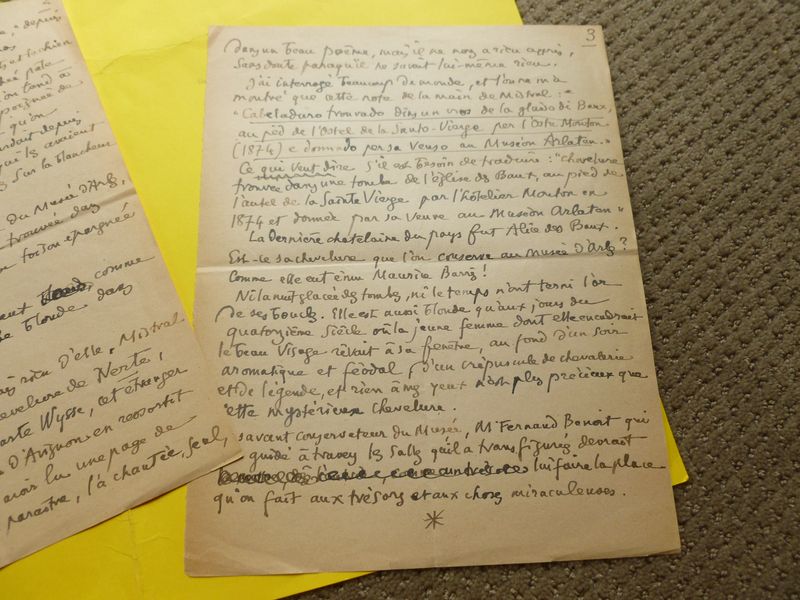 2
," depuis
et sachien
pâle
l'on tend à
poignée de
qu'on
depuis
qu'ils avaient
sur la blancheur
Du Musée d'Arles,
trouvée dans
toison épargnée
comme
blonde dans
rien d'elle, Mistral
chevelure de Nerte,
Wysse, cet étranger
D'Avignon en ressortit
avoir lu une page de
l'a chantée, seul,
3
dans un beau poème, mais il ne nous a rien appris,
sans doute parce qu'il ne savait lui-même rien.
J'ai interrogé beaucoup de monde, et l'on ne m'a
montré que cette note de la main de Mistral :
"Cabeladuro trouvado dins un vas de la glèiso di Baus
au pèd de l'autar de la Santo-Vierge per l'oste Moutoun
(1874) e dounado per sa veuso au Museon Arlaten."
Ce qui veut dire s'il est besoin de traduire : "Chevelure
trouvée dans une tombe de l'église des Baux, au pied de
l'autel de la Sainte Vierge par l'hôtelier Mouton en
1874 et donnée par sa veuve au Museon Arlaten"
La dernière châtelaine du pays fut Alix des Baux.
Est-ce sa chevelure que l'on conserve au musée d'Arles ?
Comme elle eut ému Maurice Barrès !
Ni la nuit glacée des tombes, ni le temps n'ont terni l'or
de ses boucles. Elle est aussi blonde qu'aux jours du
quatorzième siècle où la jeune femme dont elle encadrait
le beau visage rêvait à sa fenêtre, au fond d'un soir
aromatique et féodal, d'un crépuscule de chevalerie
et de légende, et rien à mes yeux n'est plus précieux que
cette mystérieuse chevelure.
savant conservateur du Musée, M. Fernand Benoit qui
guide à travers les salles qu'il a transfigurées devrait
lui faire la place
qu'on fait aux trésors et aux choses miraculeuses.